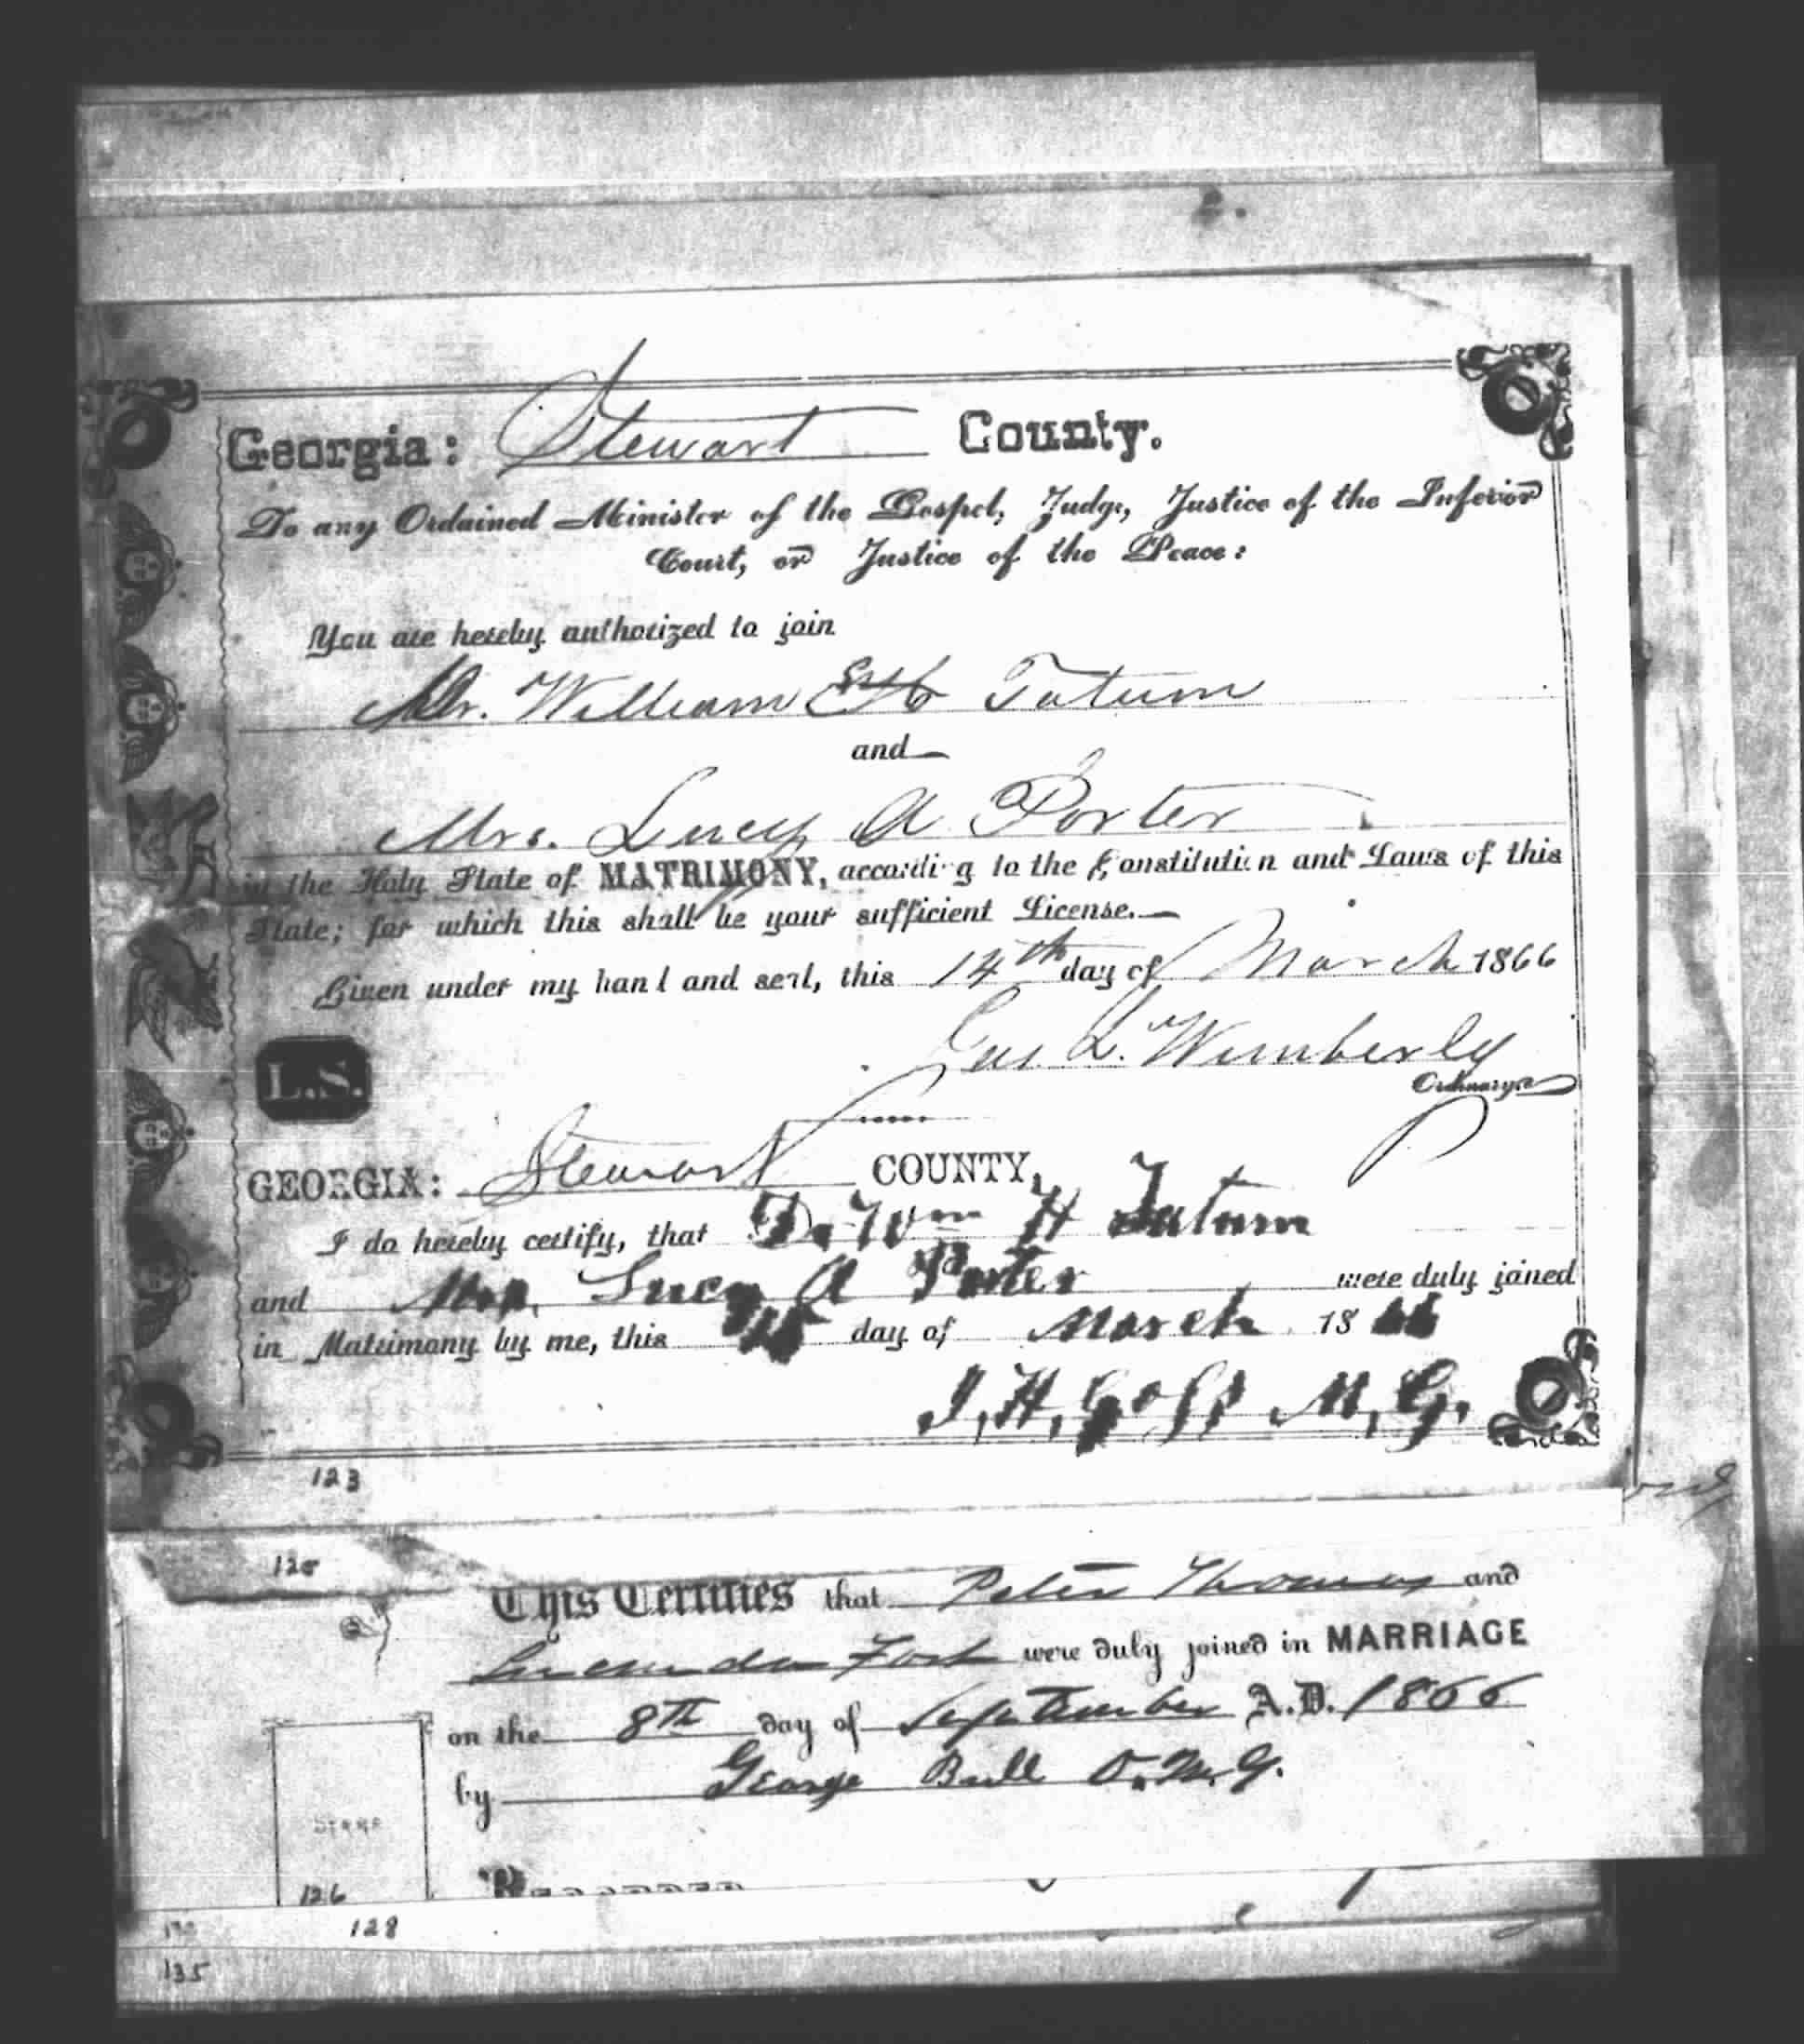 Georgia: Stewart County.
To any Ordained Minister of the Gospel, Judge, Justice of the Inferior
Court, or Justice of the Peace:
You are hereby authorized to join
Mr. William Tatum
and
Mrs. Lucy A Porter
in the Holy State of MATRIMONY, according to the Constitution and Laws of this
State; for which this shall be your sufficient License.
Given under my hand and seal, this 14th day of March 1866
L. Wimberly
Ordinary.
L.S.
GEORGIA: Stewart COUNTY,
I do hereby certify, that Wm H Tatum
and Mrs. Lucy A Porter were duly joined
in Matrimony by me, this day of March 1866
J, H, Goss M, G.
123
125
This Certifies that Peter Thomas and
Lucinda Fort were duly joined in MARRIAGE
on the 8th day of September A.D. 1866
by George Bull O. M. G.
126
128
135